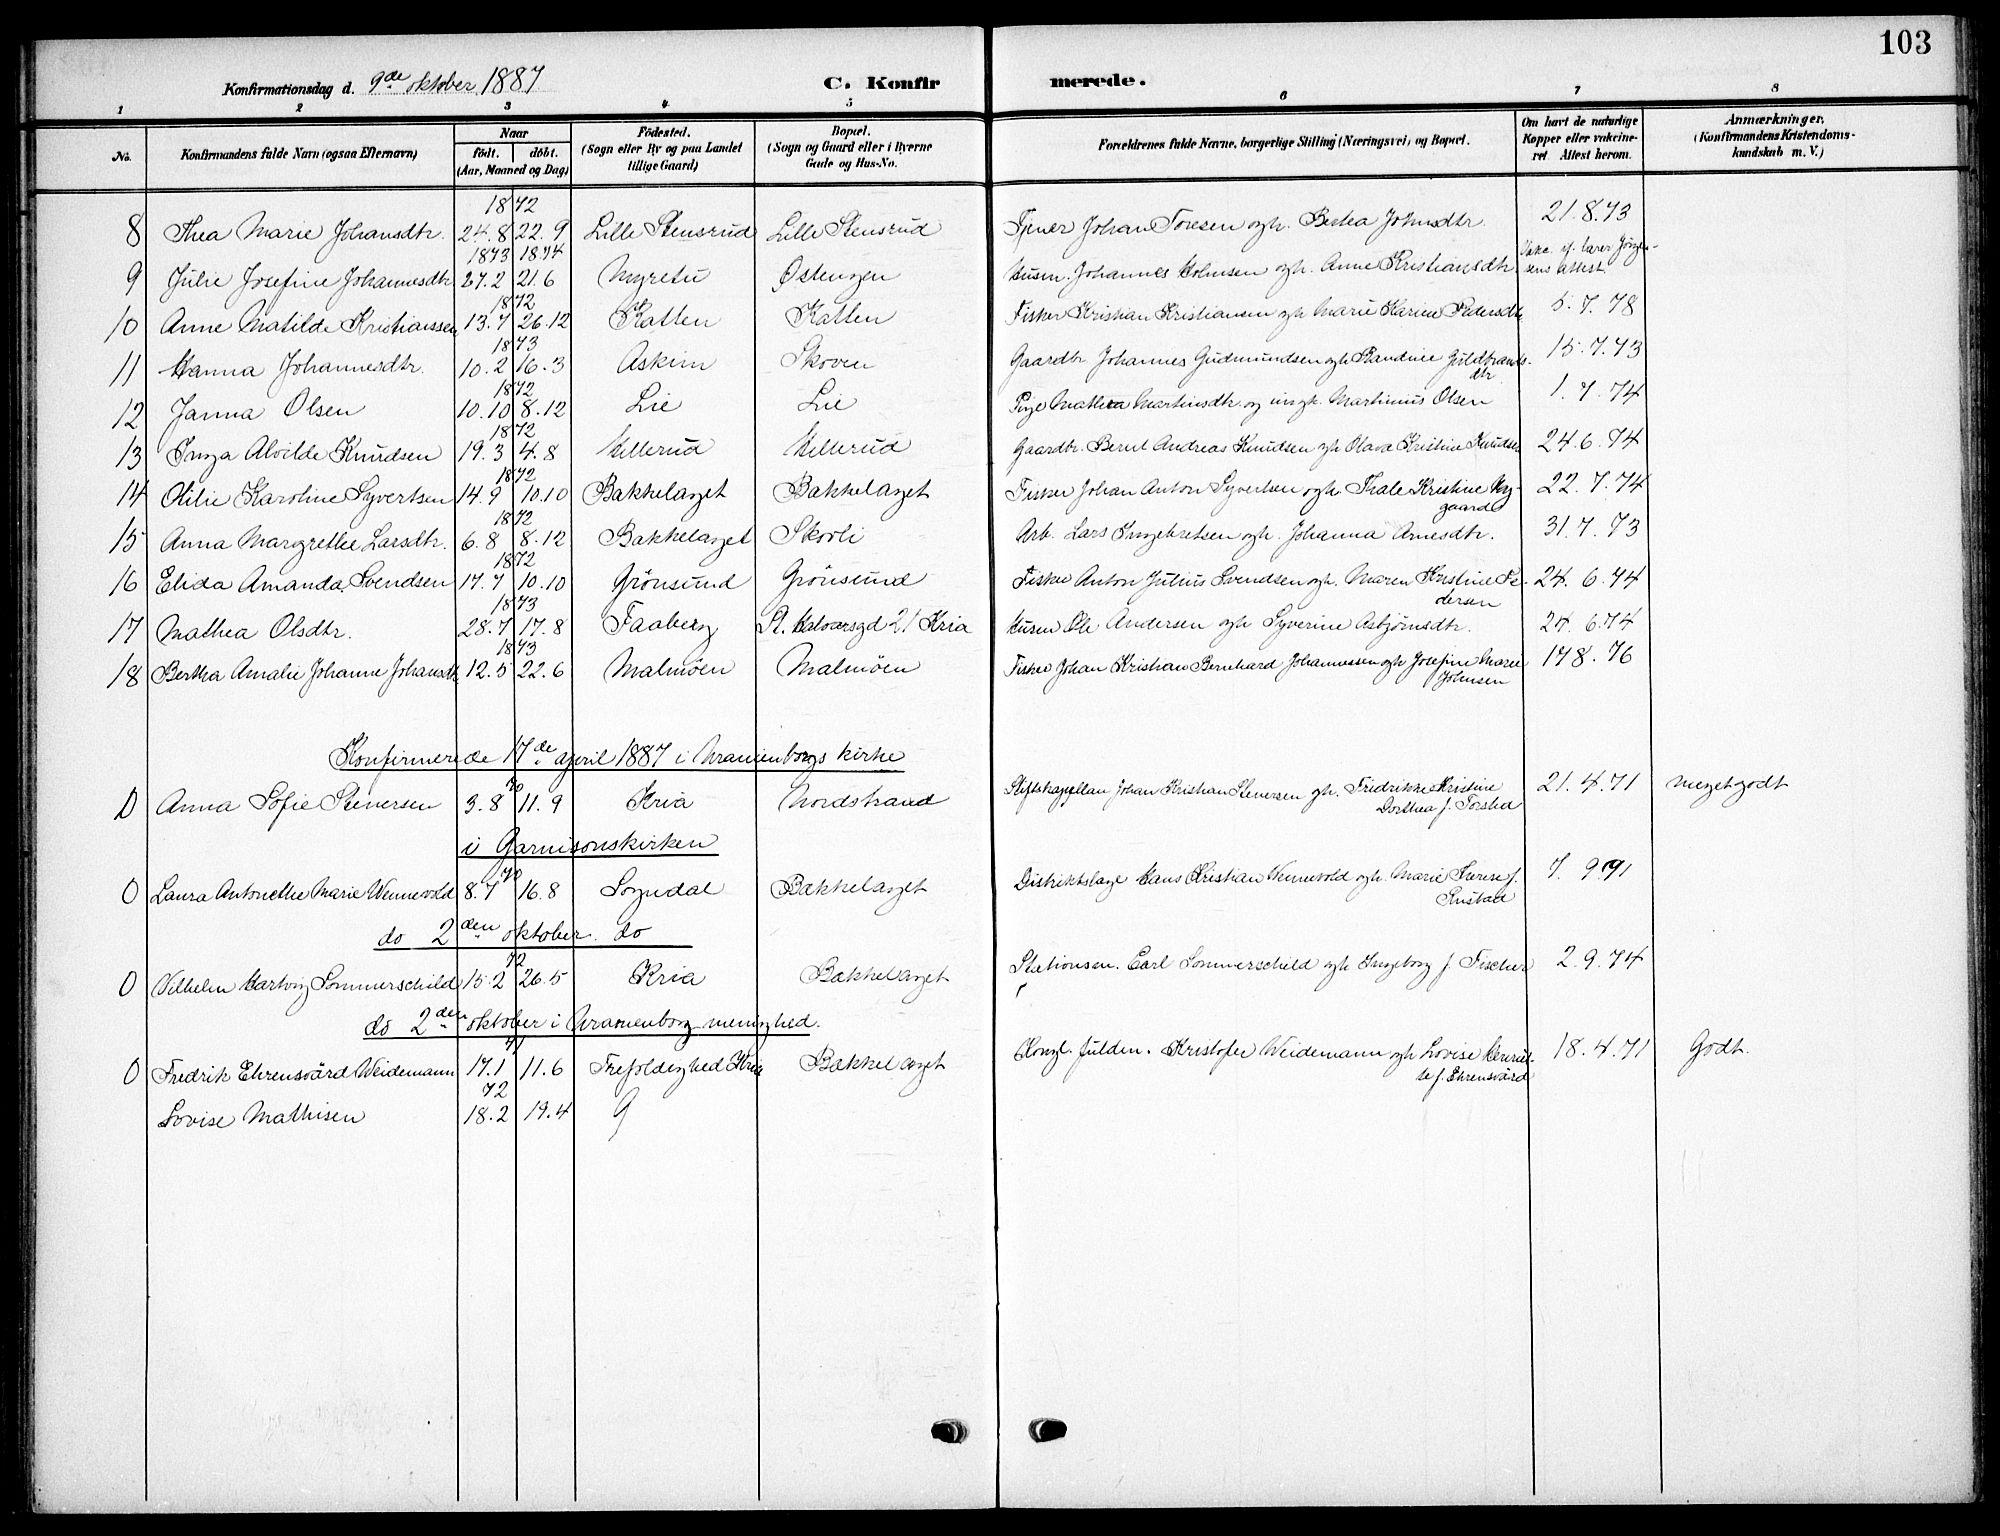 103
Konfirmationsdag d. 9de oktober 1887
C. Konfirmerede.
1 2 3 4 5 6 7 8
No.
Konfirmandens fulde Navn (ogsaa Efternavn)
Naar
födt. döbt.
(Aar, Maaned og Dag)
Födested.
(Sogn eller By og paa Landet
tillige Gaard)
Bopæl.
(Sogn og Gaard eller i Byerne
Gade og Hus-No.
Forældrenes fulde Navne, borgerlige Stilling (Næringsvei) og Bopæl.
Om havt de naturlige
Kopper eller vakcine-
ret. Attest herom.
Anmærkninger,
(Konfirmandens Kristendoms-
kundskab m. V.)
1872
8 Thea Marie Johansdtr. 24.8 22.9 Lille Stensrud Lille Stensrud Tjener Johan Toresen ogh. Berthea Johnsdtr. 21.8.73
1873 1874
9 Julie Josefine Johannesdtr. 27.2 21.6 Myretu Østengen Husm. Johannes Holmsen ogh. Anne Kristiansdtr. Vakc. if. lærer Jörgen-
sens attest
1872
10 Anne Matilde Kristianssen 13.7 26.12 Katten Katten Fisker Kristian Kristiansen ogh Marie Karine Pedersdtr 5.7.78
1873
11 Hanna Johannesdtr. 10.2 16.3 Askim Skoven Gaardbr Johannes Gudmundsen ogh Randine Guldbrands-
dtr 15.7.73
1872
12 Janna Olsen 10.10 8.12 Lie Lie Pige Mathea Martinsdtr. og ungk. Martinius Olsen 1.7.74
1872
13 Inga Alvilde Knudsen 19.3 4.8 Hellerud Hellerud Gaardbr. Bernt Andreas Knudsen ogh Olava Kristine Knudsen 24.6.74
1872
14 Otilie Karoline Syvertsen 14.9 10.10 Bakkelaget Bakkelaget Fisker Johan Anton Syvertsen ogh. Thale Kristine Ny-
gaard 22.7.74
1872
15 Anna Margrethe Larsdtr. 6.8 8.12 Bakkelaget Skovli Arb. Lars Ingebretsen ogh. Johanna Arnesdtr. 31.7.73
1872
16 Elida Amanda Svendsen 17.7 10.10 Grönsund Grönsund Fisker Anton Julius Svendsen ogh. Maren Kristine Pe-
dersen 24.6.74
1873
17 Mathea Olsdtr. 28.7 17.8 Faaberg St. Halvarsgd 21 Kria Husm Ole Andersen ogh Syverine Asbjörnsdtr. 24.6.74
1873
18 Bertha Amalie Johanne Johansdtr 12.5 22.6 Malmöen Malmöen Fisker Johan Kristian Bernhard Johannessen ogh Josefine Marie
Johnsen 17 8.76
Konfirmerede 17de april 1887 i Uranienborgs kirke
70
0 Anna Sofie Stenersen 3.8 11.9 Kria Nordstrand Stiftskapellan Johan Kristian Stenersen gh. Fredrikke Kristine
Dorthea f. Torsted 21.4.71 meget godt
i Garnisonskirken
70
0 Laura Antonethe Marie Wennevold 8.7 16.8 Sogndal Bakkelaget Distriktslæge Hans Kristian Wennevold ogh. Marie Terese f.
7. 9. 91
do 2den oktober. do
72
0 Vilhelm Hartvig Sommerschild 15.2 26.5 Kria Bakkelaget Carl Sommerschild ogh Ingeborg f. Fischer 2.9.74
do 2den oktober i Uranienborg menighed.
71
0 Fredrik Ehrensvärd Weidemann 17.1 11.6 Trefoldighed Kria Bakkelaget Kristofer Weidemann ogh Lovise Henriet-
te f. Ehrensvärd 18.4.71 Godt.
72
Lovise Mathisen 18.2 19.4